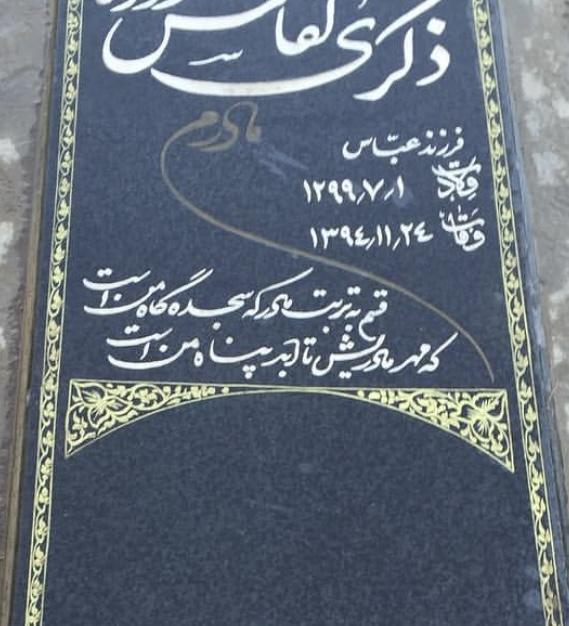 ذکری
مادرم
فرزند عبّاس
ولادت ۱۲۹۹٫۷٫۱
وفات ۱۳۹٤٫۱۱٫۲٤
قسم به تربت مادر که سجده گاه من است
که مهر مادریش تا ابد پناه من است